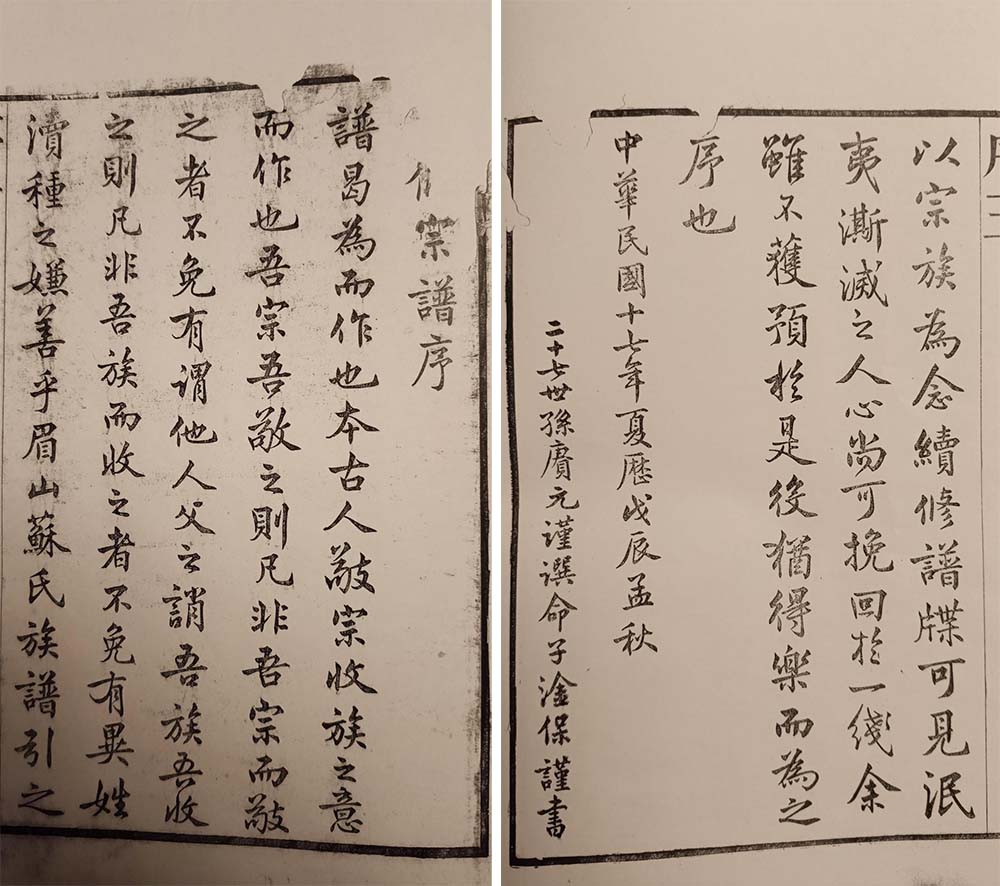 宗譜序
譜曷為而作也本古人敬宗收族之意
而作也吾宗吾敬之則凡非吾宗而敬
之者不免有謂他人父之誚吾族吾收
之則凡非吾族而收之者不免有異姓
瀆種之嫌善乎眉山蘇氏族譜引之
以宗族為念續修譜牒可見泯
夷澌滅之人心尚可挽回於一綫余
雖不獲預於是役猶得樂而為之
序也
中華民國十七年夏歷戊辰孟秋
二十七世孫賡元謹譔命子淦保謹書